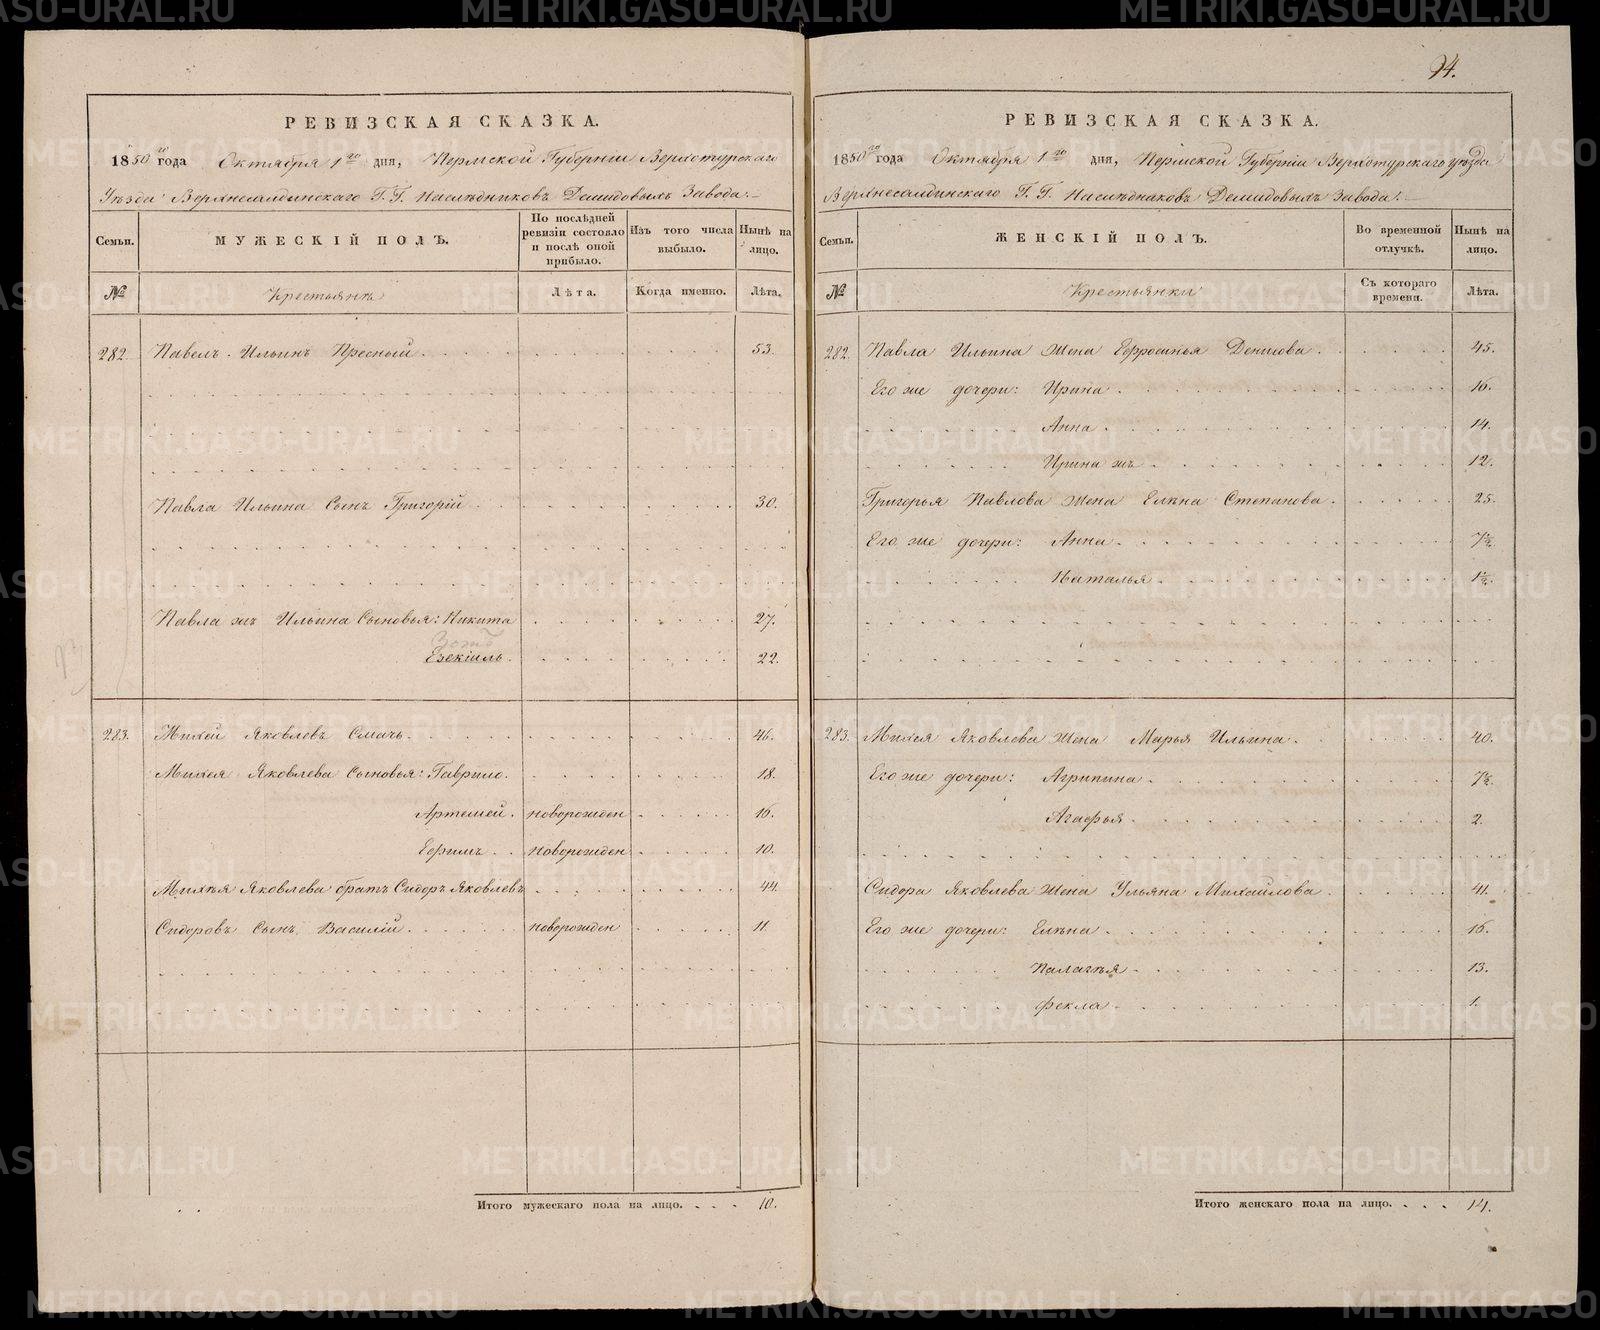 94.
РЕВИЗСКАЯ СКАЗКА.
1850го года Октября 1го дня, Пермской Губернiи Верхотурскаго
Уѣзда Верхнесалдинскаго Г. Г. Наслѣдниковъ Демидовыхъ Завода.
Семьи. МУЖЕСКIЙ ПОЛЪ. По послѣдней ревизiи состояло и послѣ оной прибыло. Изъ того числа выбыло. Нынѣ на лицо.
№ Крестьянъ Лѣта. Когда именно. Лѣта.
282. Павелъ Ильинъ Пресный 53.
Павла Ильина Сынъ Григорiй 30.
Павла жъ Ильина Сыновья: Никита 27.
Зотъ
Езекiиль 22.
283. Михей Яковлевъ Смачъ 46.
Михея Яковлева Сыновья: Гаврило 18.
Артемей новорожден 16.
Ефимъ новорожден 10.
Михѣя Яковлева братъ Сидоръ Яковлевъ 44.
Сидоровъ Сынъ Василiй новорожден 11.
Итого мужескаго пола на лицо. 10.
РЕВИЗСКАЯ СКАЗКА.
1850го года Октября 1го дня, Пермской Губернiи Верхотурскаго уѣзда
Верхнесалдинскаго Г. Г. Наслѣдниковъ Демидовыхъ завода.
Семьи. ЖЕНСКIЙ ПОЛЪ. Во временной отлучкѣ. Нынѣ на лицо.
№ Крестьянки Съ котораго времени. Лѣта.
282. Павла Ильина жена Ефросинья Денисова 45.
Его же дочери: Ирина 16.
Анна 14.
Ирина жъ 12.
Григорья Павлова жена Елена Степанова 25.
Его же дочери: Анна 7½
Наталья 1½.
283. Михея Яковлева жена Марья Ильина 40.
Его же дочери: Агрипина 7½.
Агафья 2.
Сидора Яковлева жена Ульяна Михайлова 41.
Его же дочери: Елена 16.
Палагѣя 13.
Фекла 1.
Итого женскаго пола на лицо. 14.
METRIKI.GASO-URAL.RU